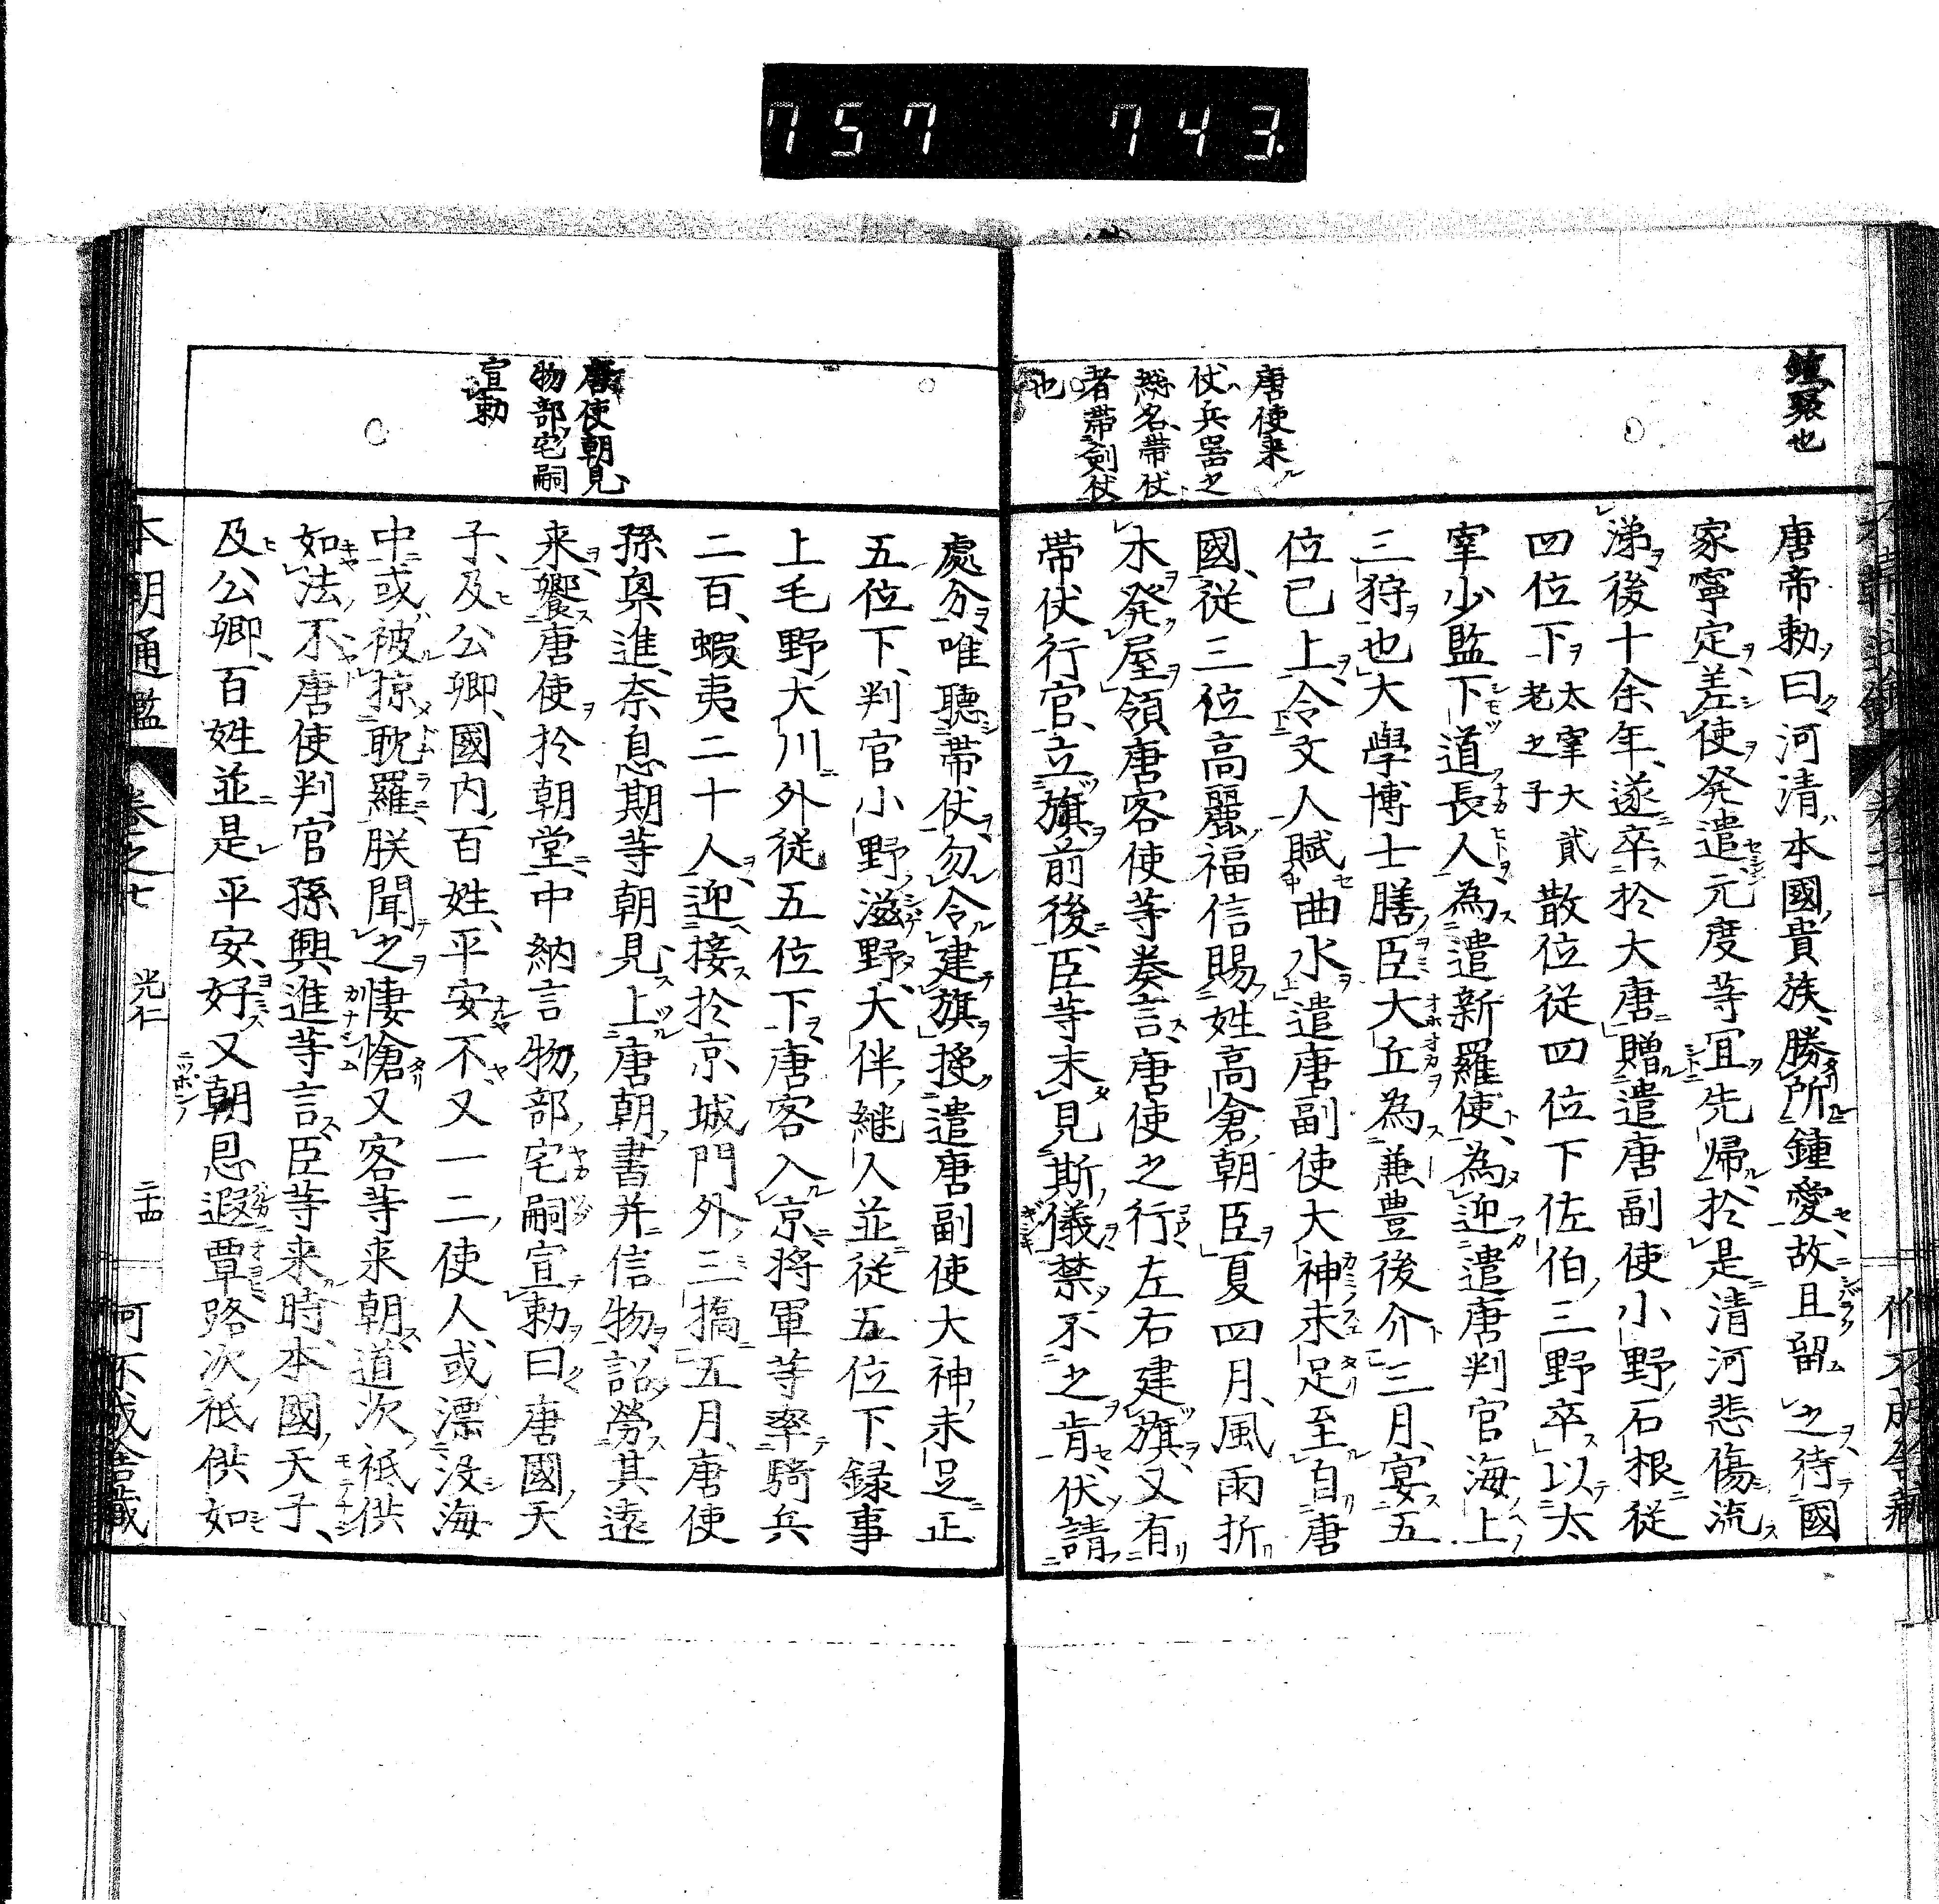 757 743.
鐘聚也
唐帝勅曰河清本國貴族勝所鍾愛故且留之待國
家寧定差使発遣元度等冝先歸於是清河悲傷流
涕後十余年遂卒於大唐贈遣唐副使小野石根従
四位下太宰大貳老之子散位従四位下佐伯三野卒以太
宰少監下道長人為遣新羅使為迎遣唐判官海上
三狩也大學博士膳臣大丘為兼豊後介三月宴五
位已上令文人賦曲水遣唐副使大神末足至自唐
國従三位高麗福信賜姓高倉朝臣夏四月風雨折
木発屋領唐客使等奏言唐使之行左右建旗又有
帯仗行官立旗前後臣等未見斯儀禁不之肯伏請
唐使来
仗兵器之
惣名帯仗
者帯剣仗
也
處分唯聽帯仗勿令建旗授遣唐副使大神末足正
五位下判官小野滋野大伴継人並従五位下録事
上毛野大川外従五位下唐客入京将軍等率騎兵
二百蝦夷二十人迎接於京城門外三橋五月唐使
孫興進奈息期等朝見上唐朝書并信物詔勞其遠
来饗唐使於朝堂中納言物部宅嗣宣勅曰唐國天
子及公卿國内百姓平安不又一二使人或漂没海
中或被掠耽羅朕聞之悽愴又客等来朝道次祗供
如法不唐使判官孫興進等言臣等来時本國天子
及公卿百姓並是平安好又朝恩遐覃路次祗供如
唐使朝見
物部宅嗣
宣勅
本朝通鑑 卷之七 光仁 二十四